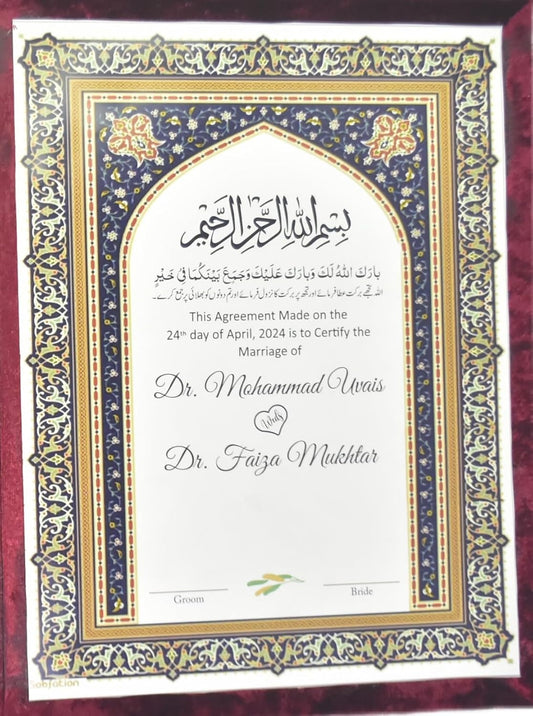 بسم الله الرحمن الرحيم
بارك الله لك وبارك عليك وجمع بينكما في خير
اللہ تجھے برکت عطا فرمائے اور تجھ پر برکت کا نزول فرمائے اور تم دونوں کو بھلائی پر جمع کرے۔
This Agreement Made on the
24th day of April, 2024 is to Certify the
Marriage of
Dr. Mohammad Uvais
With
Dr. Faiza Mukhtar
Groom
Bride